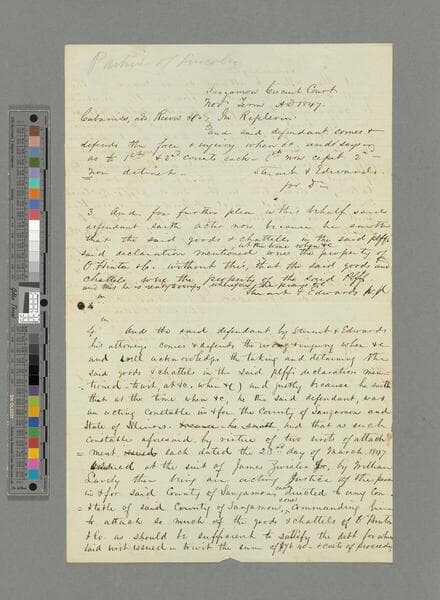 Sangamon Circuit Court
Nov Term AD 1847.
Cabaniss, ads. Reeve &Co. In Replevin.
And said defendant comes &
defends the force & injury when &c. and says
as to 1st & 2nd counts each 1st non cepit 2nd
non detinet - Stuart & Edwards
for Dft
3. And for further plea in this behalf said
defendant saith actio non because he saith
that the said goods & chattels in the said plffs
at the time when &c
said declaration mentioned were the property of
&c. without this, that the said goods and
chattels were the property of the said Plff
and this he is ready to verify wherefore he prays &c
Stuart & Edwards p.d.
4. And the said defendant by Stuart & Edwards
his attorneys comes & defends the wrong & injury when &c
and well acknowledge the taking and detaining the
said goods & chattels in the said plffs declaration men-
-tioned - to wit, at &c. when &c) and justly because he saith
that at the time when &c, he the said defendant, was
an acting Constable in & for the County of Sangamon and
State of Illinois. and that as such
Constable aforesaid by virtue of two writs of attach
-ment each dated the 23rd day of March 1847
at the suit of James by William
Lavely then being an acting Justice of the peace
in & for said County of Sangamon, directed to any Con-
-stable of said County of Sangamon, commanding him
to attach so much of the goods & chattels of
&c as should be sufficient to satisfy the debt for which
said writ issued - to wit the sum of & costs of proceedg